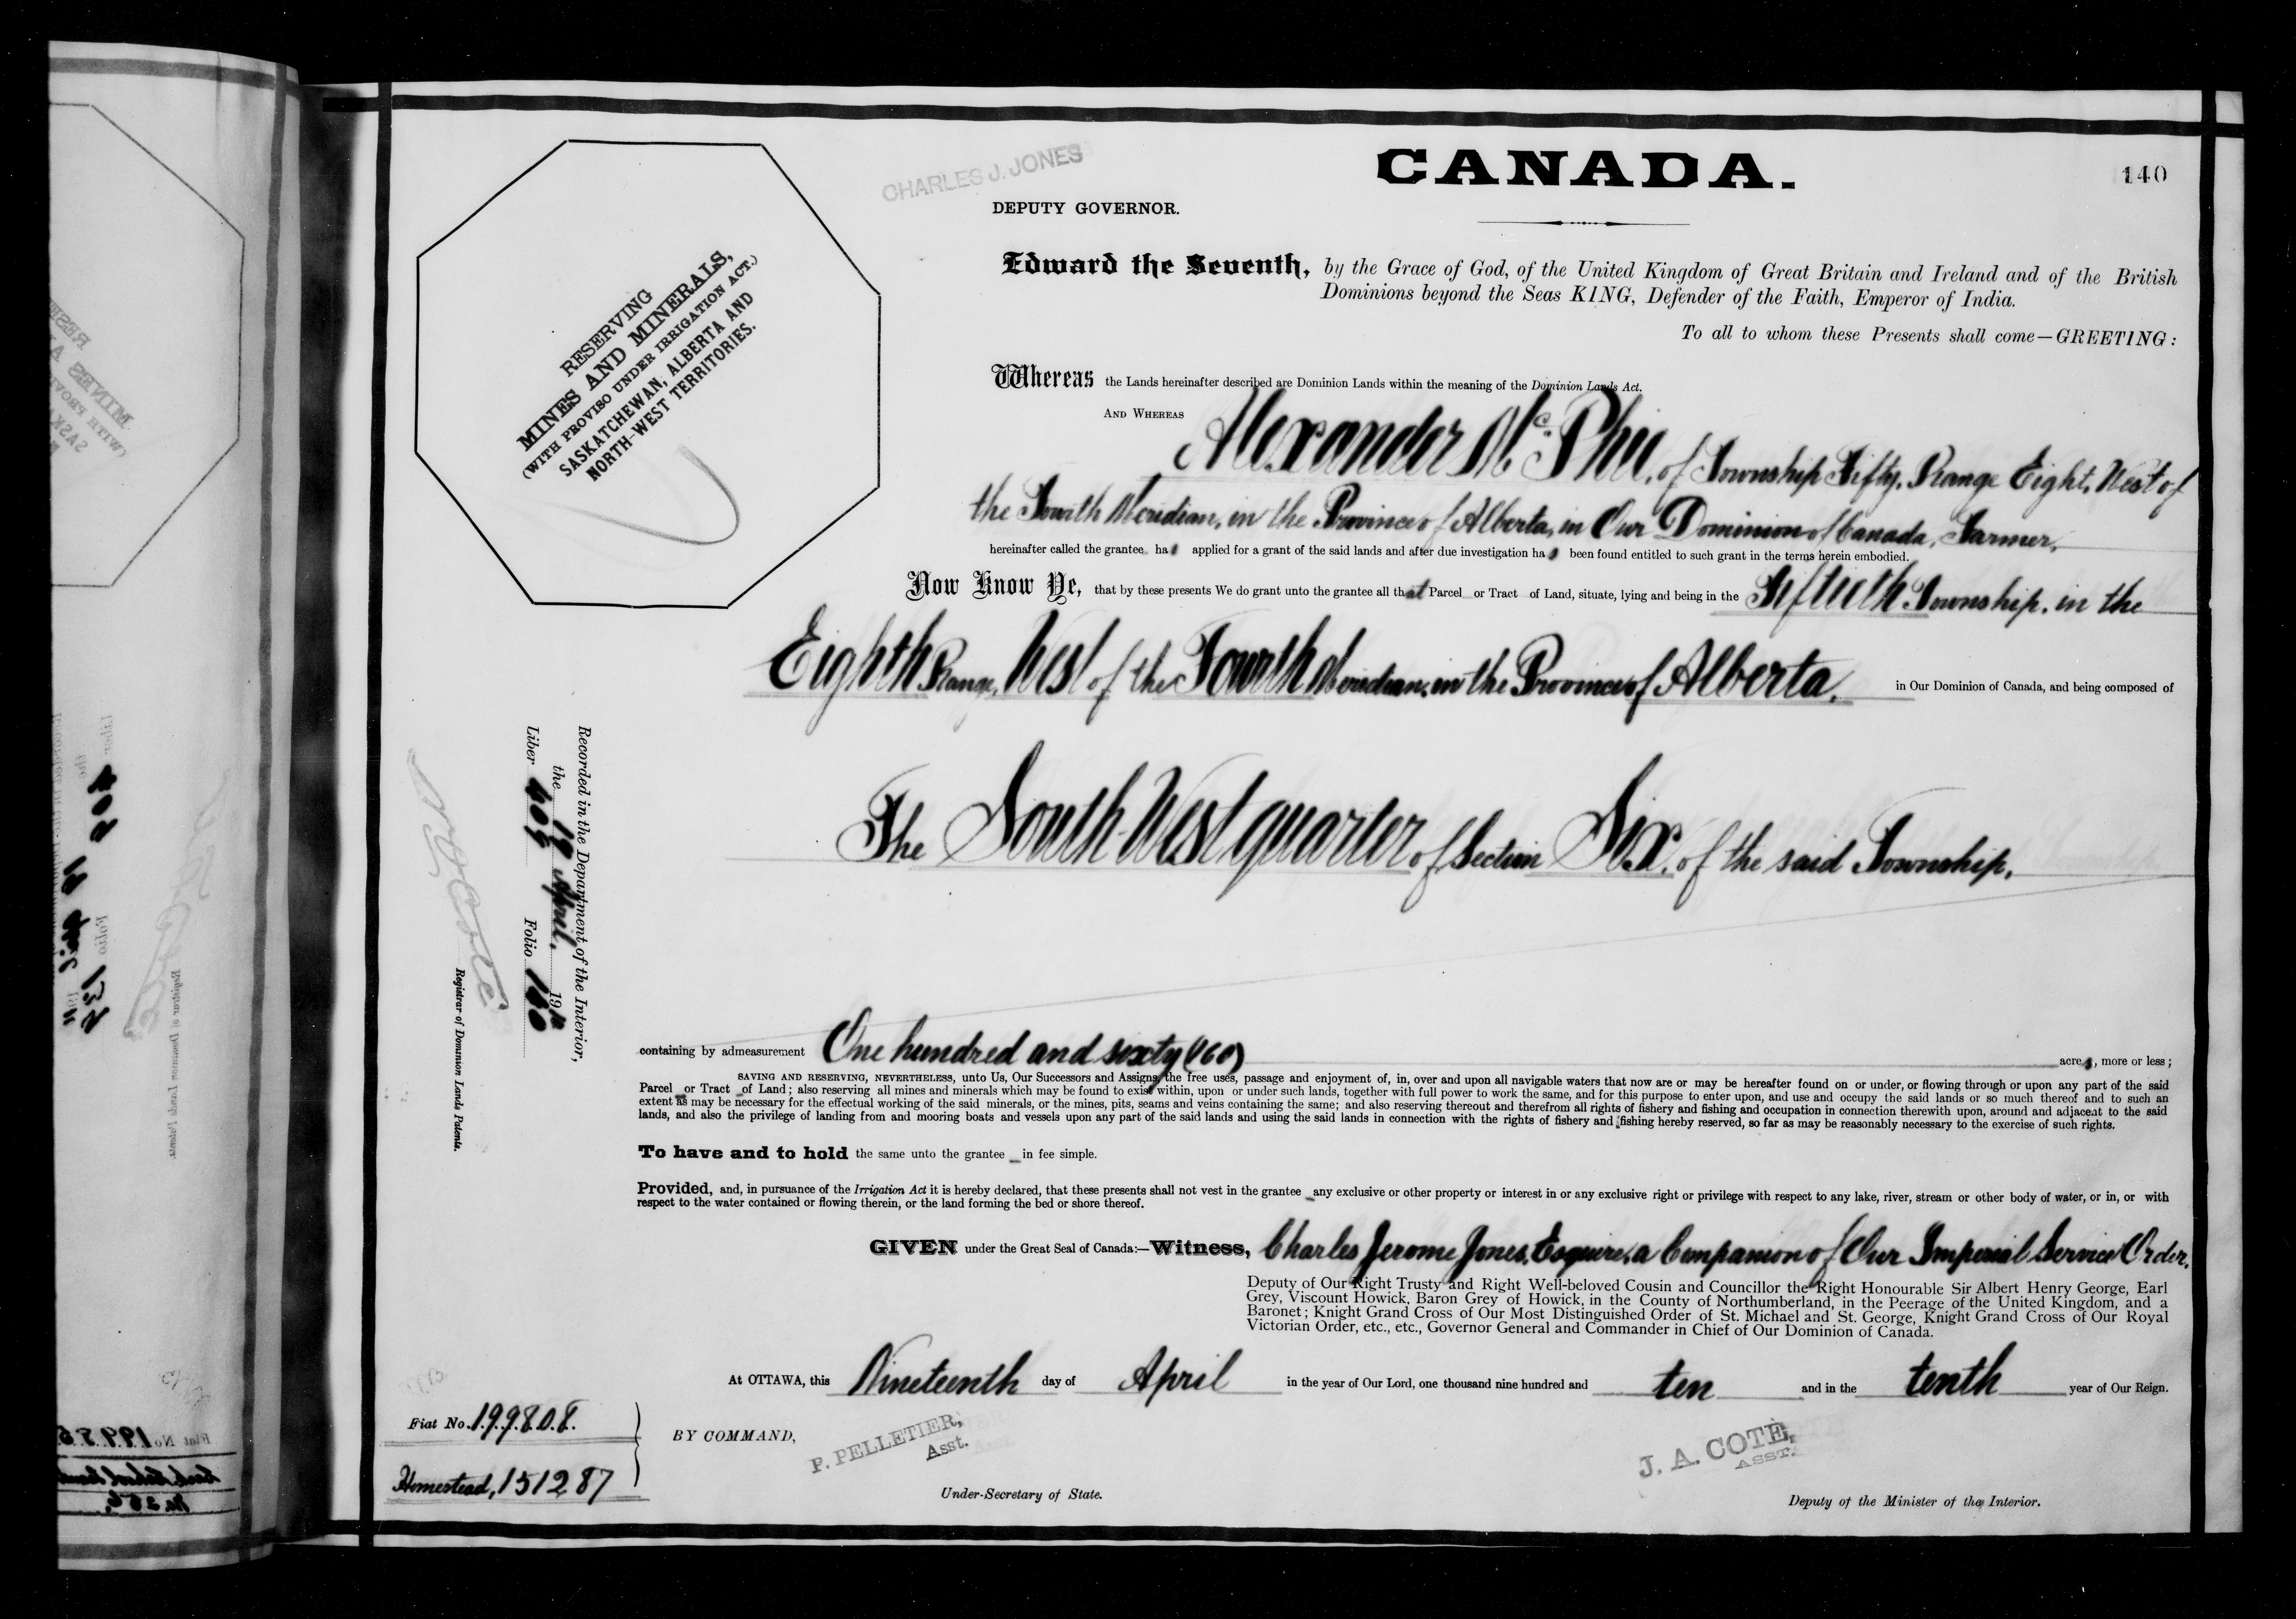 CHARLES J. JONES
CANADA.
140
DEPUTY GOVERNOR.
Edward the Seventh, by the Grace of God, of the United Kingdom of Great Britain and Ireland and of the British
Dominions beyond the Seas KING, Defender of the Faith, Emperor of India.
To all to whom these Presents shall come—GREETING:
RESERVING
MINES AND MINERALS,
(WITH PROVISO UNDER IRRIGATION ACT.)
SASKATCHEWAN, ALBERTA AND
NORTH-WEST TERRITORIES.
Whereas the Lands hereinafter described are Dominion Lands within the meaning of the Dominion Lands Act.
AND WHEREAS Alexander McPhee, of Township Fifty, Range Eight, West of
the Fourth Meridian, in the Province of Alberta, in Our Dominion of Canada, Farmer,
hereinafter called the grantee has applied for a grant of the said lands and after due investigation has been found entitled to such grant in the terms herein embodied.
Now Know Ye, that by these presents We do grant unto the grantee all that Parcel or Tract of Land, situate, lying and being in the Fiftieth Township, in the
Eighth Range, West of the Fourth Meridian, in the Province of Alberta, in Our Dominion of Canada, and being composed of
The South West quarter of Section Six, of the said Township,
Recorded in the Department of the Interior,
the 19 April, 1910
Liber 405 Folio 140
Registrar of Dominion Lands Patents.
containing by admeasurement One hundred and sixty (160) acres, more or less;
SAVING AND RESERVING, NEVERTHELESS, unto Us, Our Successors and Assigns, the free uses, passage and enjoyment of, in, over and upon all navigable waters that now are or may be hereafter found on or under, or flowing through or upon any part of the said
Parcel or Tract of Land; also reserving all mines and minerals which may be found to exist within, upon or under such lands, together with full power to work the same, and for this purpose to enter upon, and use and occupy the said lands or so much thereof and to such an
extent as may be necessary for the effectual working of the said minerals, or the mines, pits, seams and veins containing the same; and also reserving thereout and therefrom all rights of fishery and fishing and occupation in connection therewith upon, around and adjacent to the said
lands, and also the privilege of landing from and mooring boats and vessels upon any part of the said lands and using the said lands in connection with the rights of fishery and fishing hereby reserved, so far as may be reasonably necessary to the exercise of such rights.
To have and to hold the same unto the grantee in fee simple.
Provided, and, in pursuance of the Irrigation Act it is hereby declared, that these presents shall not vest in the grantee any exclusive or other property or interest in or any exclusive right or privilege with respect to any lake, river, stream or other body of water, or in, or with
respect to the water contained or flowing therein, or the land forming the bed or shore thereof.
GIVEN under the Great Seal of Canada:—Witness, Charles Jerome Jones, Esquire, a Companion of Our Imperial Service Order,
Deputy of Our Right Trusty and Right Well-beloved Cousin and Councillor the Right Honourable Sir Albert Henry George, Earl
Grey, Viscount Howick, Baron Grey of Howick, in the County of Northumberland, in the Peerage of the United Kingdom, and a
Baronet; Knight Grand Cross of Our Most Distinguished Order of St. Michael and St. George, Knight Grand Cross of Our Royal
Victorian Order, etc., etc., Governor General and Commander in Chief of Our Dominion of Canada.
At OTTAWA, this Nineteenth day of April in the year of Our Lord, one thousand nine hundred and ten and in the tenth year of Our Reign.
Fiat No. 199808.
Homestead, 151287
BY COMMAND,
P. PELLETIER,
Asst.
Under-Secretary of State.
J. A. COTE,
ASST.
Deputy of the Minister of the Interior.